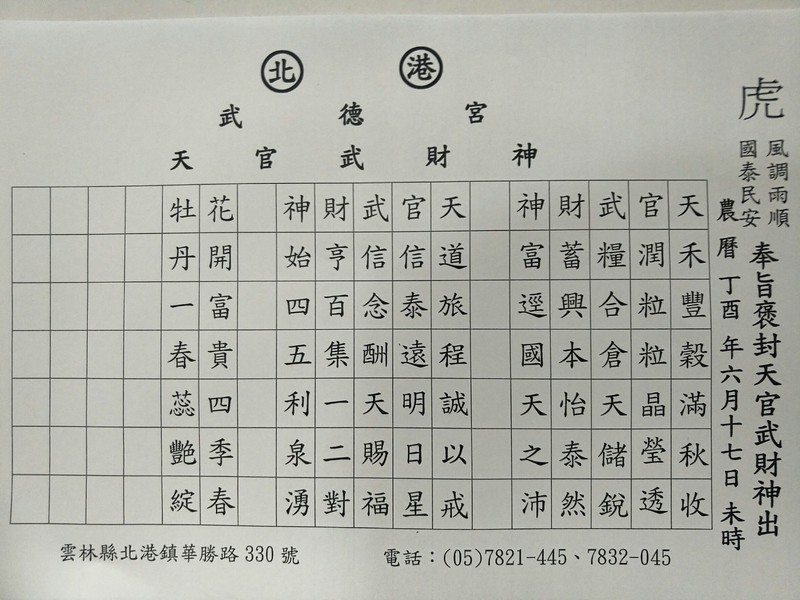 北港
武德宮
天官武財神
虎
風調雨順
國泰民安
奉旨褒封天官武財神出
農曆丁酉年六月十七日未時
天禾豐穀滿秋收
官潤粒粒晶瑩透
武糧合倉天儲銳
財蓄興本怡泰然
神富逕國天之沛
天道旅程誠以戒
官信泰遠明日星
武信念酬天賜福
財亨百集一二對
神始四五利泉湧
花開富貴四季春
牡丹一春蕊艷綻
雲林縣北港鎮華勝路330號
電話：(05)7821-445、7832-045